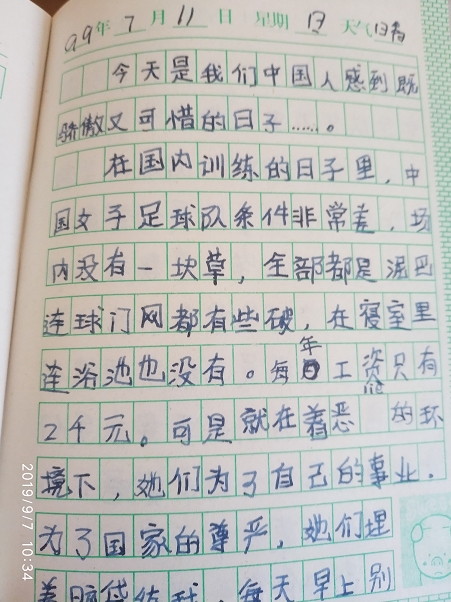 99年 7月 11日 星期日 天气 日者
今天是我们中国人感到既
骄傲又可惜的日子……。
在国内训练的日子里，中
国女子足球队条件非常差，场
内没有一块草，全部都是泥巴
连球门网都有些破，在寝室里
连浴池也没有。每年工资只有
24元。可是就在着恶 的环
境下，她们为了自己的事业．
为了国家的尊严，她们埋
着脑袋练球，每天早上别
2019/9/7 10:34